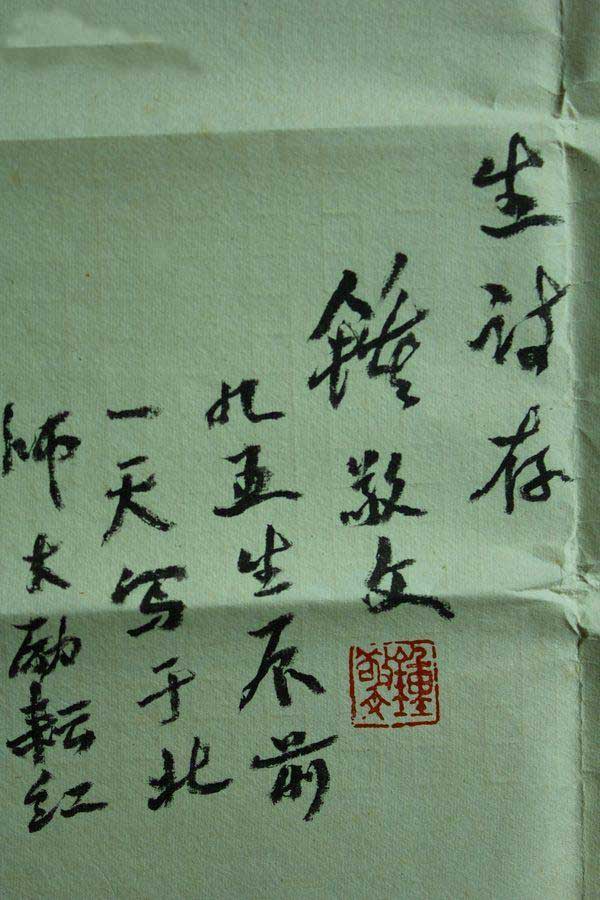 生诗存
鍾敬文
九五生辰前
一天写于北
师大励耘红
鍾敬文